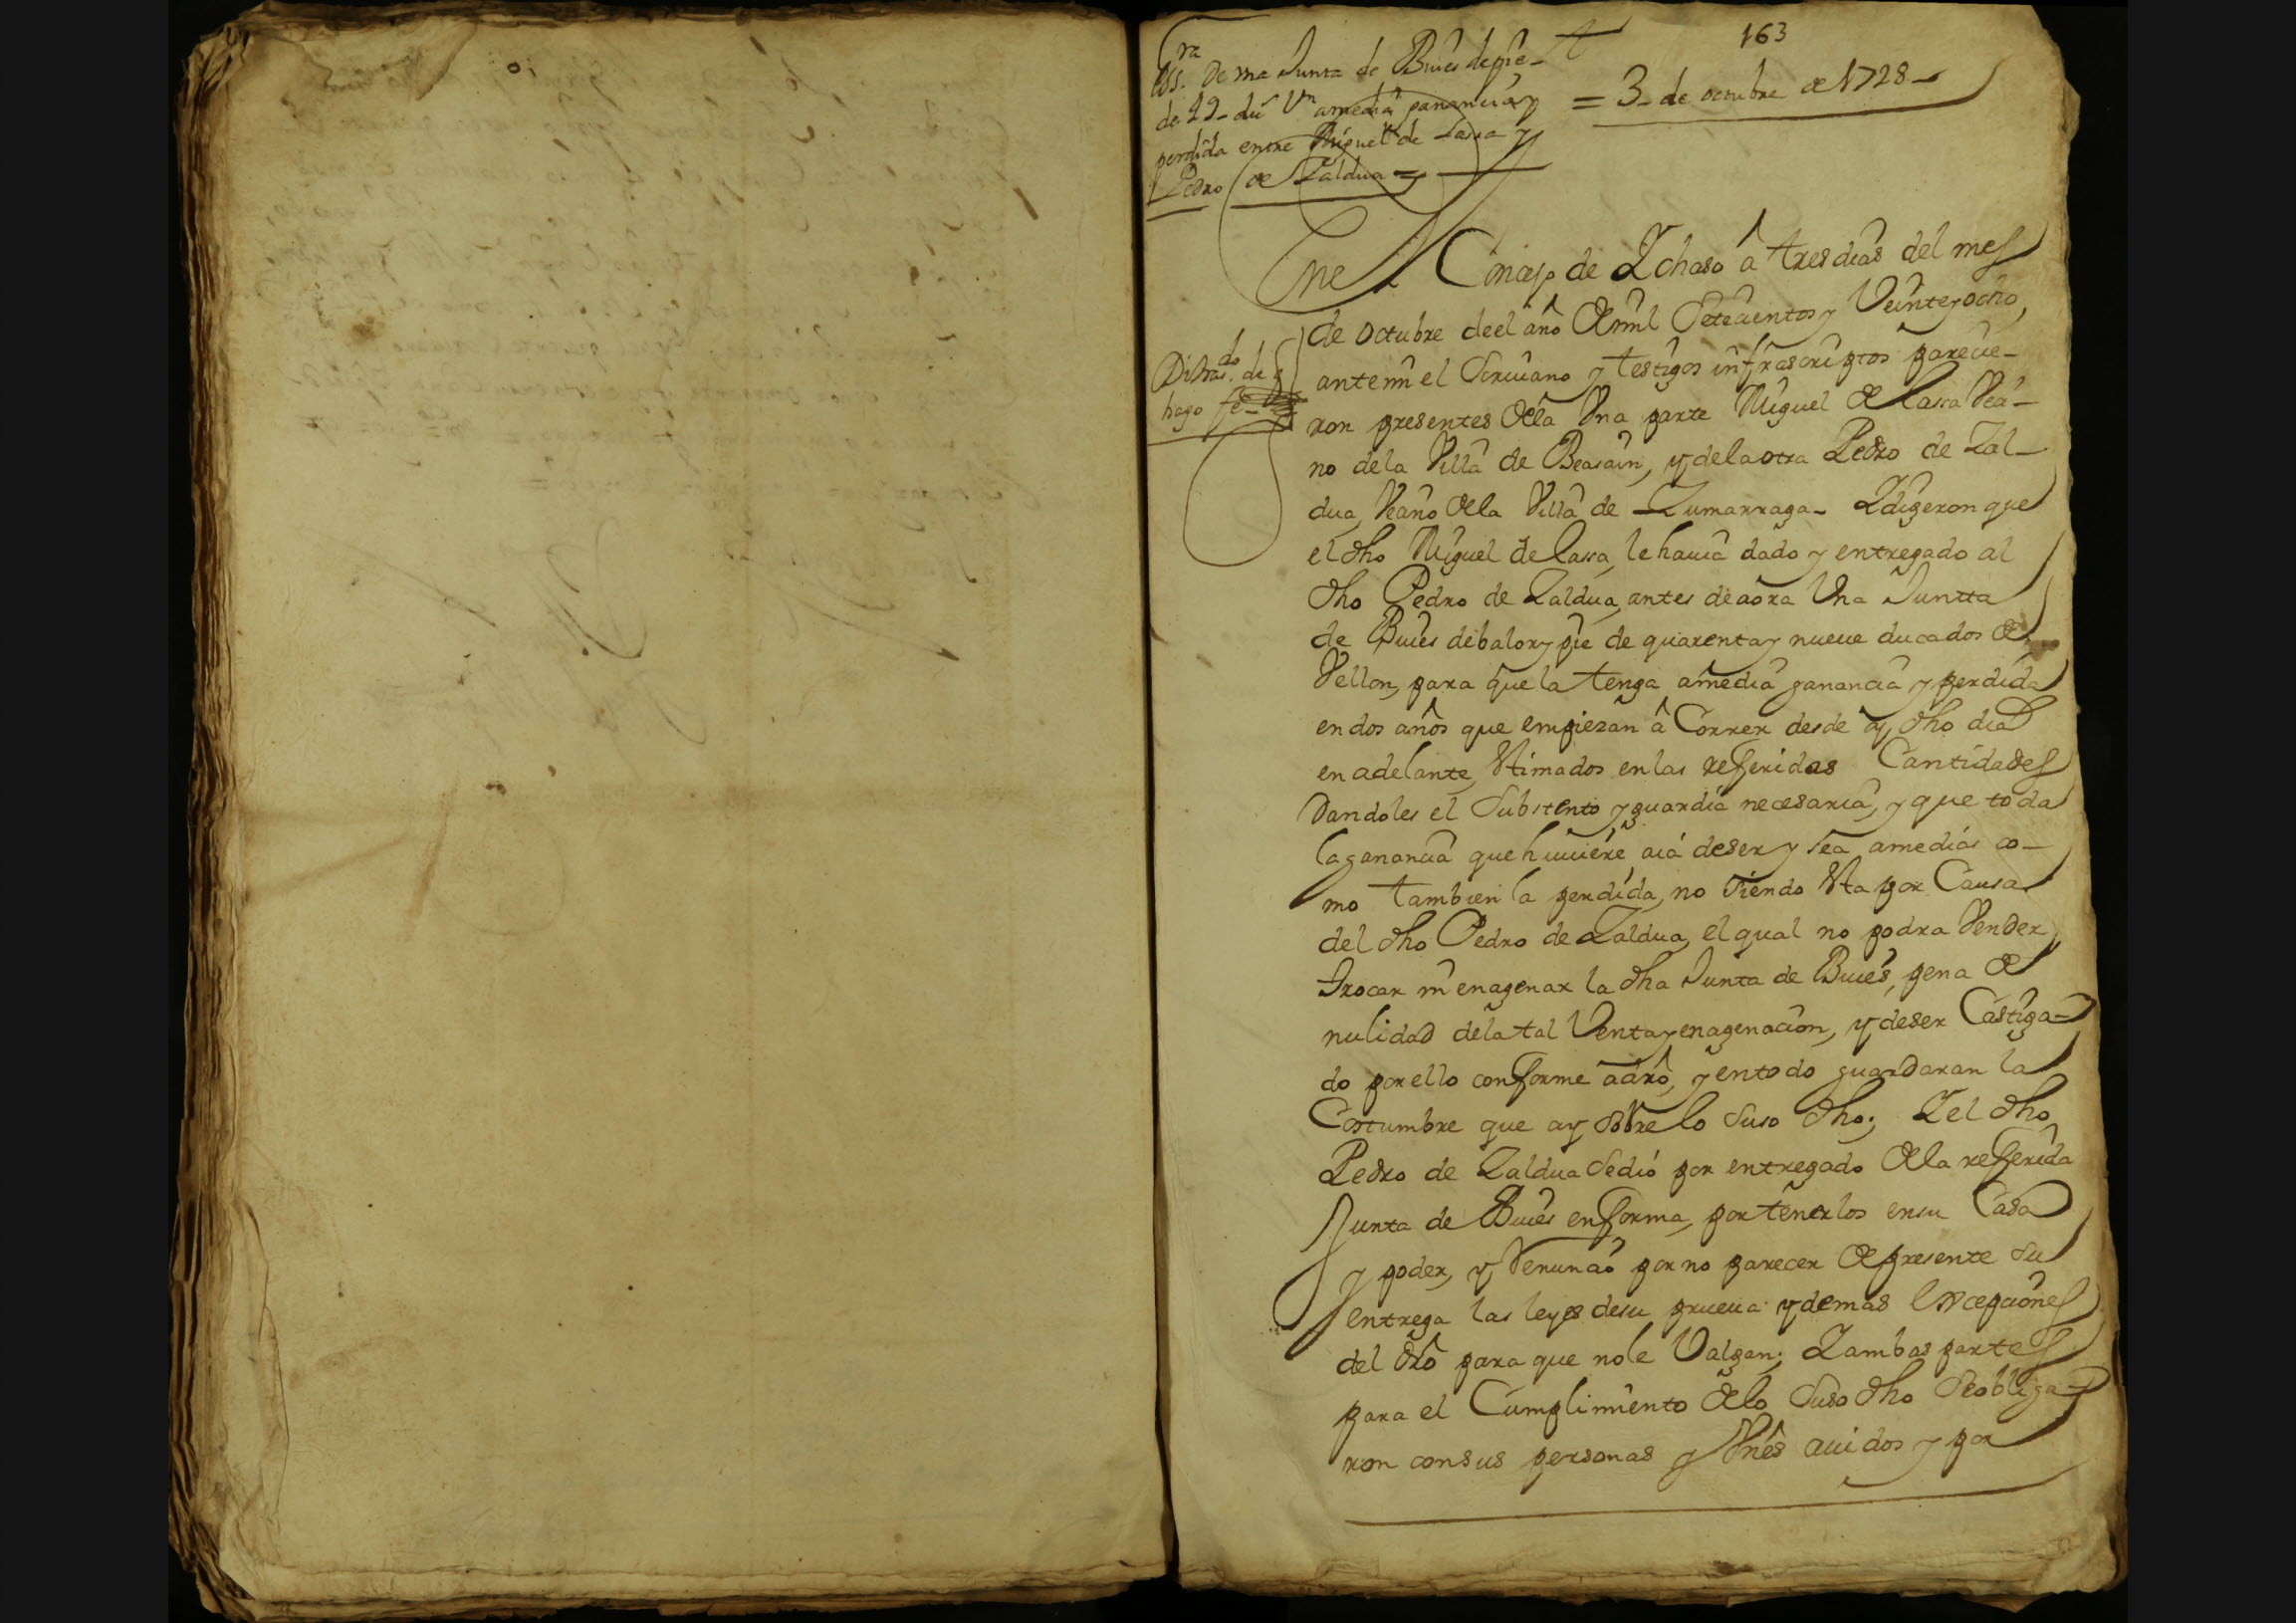 163
Ess.ra De una Junta de Bueies de pie
de 49 du.s V.n a media ganancia y
perdida entre Miguel de Lassa y
Pedro de Zaldua =
= 3 de octubre de 1728
En el Concejo de Ichaso â tres dias del mes
de octubre de el año de mil setecientos y Veinte y ocho,
ante mi el Scriuano y testigos infrascriptos parecie-
ron presentes de la Una parte Miguel de Lassa Veci-
no de la Villa de Beasain, y de la otra Pedro de Zal-
dua, Vecino de la Villa de Zumarraga. I digeron que
el dho Miguel de Lassa, le hauia dado y entregado al
dho Pedro de Zaldua, antes de aora Una Juntta
de Bueies de balor y pie de quarenta y nueue ducados de
Vellon, para que la tenga a media ganancia y perdida
en dos años que empiezan â Correr desde oy dho dia
en adelante, stimados en las referidas Cantidades
Dandoles el Substento y guardia necesaria, y que toda
la ganancia que huuiere aia de ser y sea a medias co-
mo tambien la perdida, no siendo sta por Causa
del dho Pedro de Zaldua, el qual no podra Vender
trocar ni enagenar la dha Junta de Bueies, pena de
nulidad de la tal Venta y enagenacion, y de ser Castiga-
do por ello conforme a drô, y en todo guardaran la
Costumbre que ay sobre lo suso dho; I el dho
Pedro de Zaldua se dió por entregado de la referida
Junta de Bueies en forma, por tenerlos en su Casa
y poder, y Renunció por no parecer de presente su
entrega las leyes de su prueua y demas excepciones
del drô para que no le Valgan; I ambas partes
para el Cumplimiento de lo suso dho se obliga-
ron con sus personas y Vnês auidos y por
hago fe